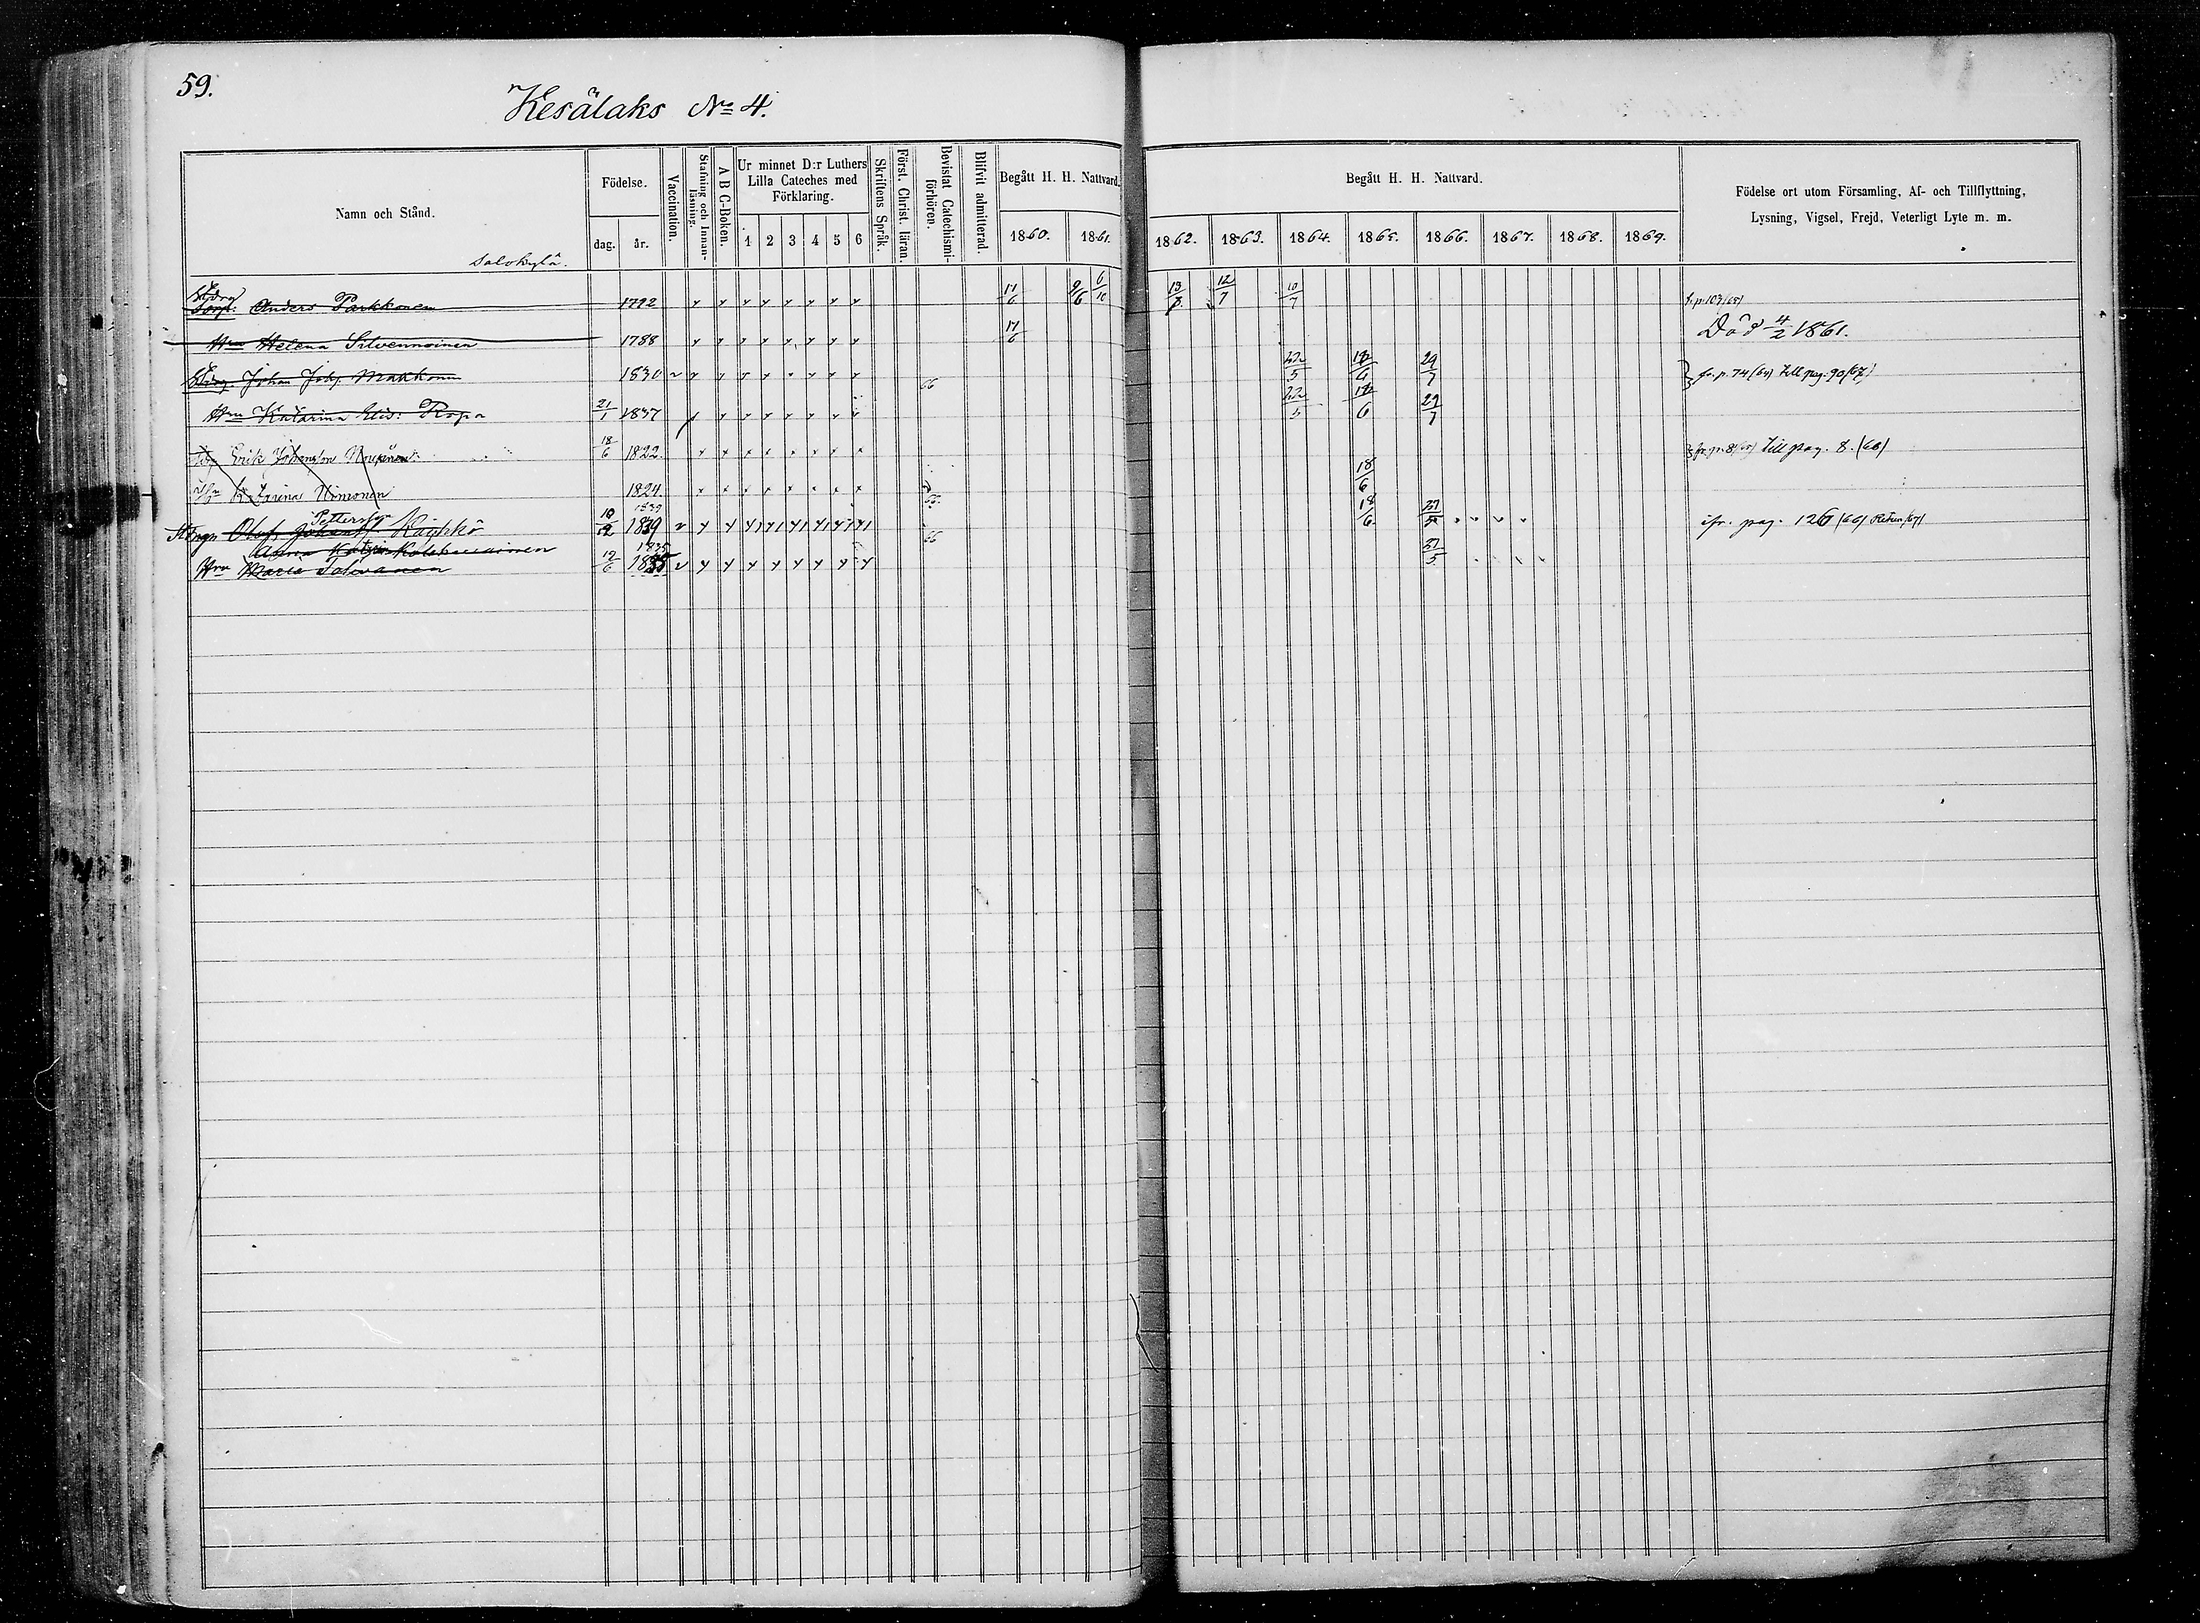 59.
Kesälaks No 4.
Namn och Stånd.
Födelse.
dag.
år.
Vaccination.
Stafning och Innanläsning.
A B C-Boken.
Ur minnet D:r Luthers Lilla Cateches med Förklaring.
1 2 3 4 5 6
Skriftens Språk.
Först. Christ. läran.
Bevistat Catechismiförhören.
Blifvit admitterad.
Begått H. H. Nattvard.
1860. 1861.
Begått H. H. Nattvard.
1862. 1863. 1864. 1865. 1866. 1867. 1868. 1869.
Födelse ort utom Församling, Af- och Tillflyttning,
Lysning, Vigsel, Frejd, Veterligt Lyte m. m.
Salokylä.
Anders Parkkonen 1792 17/6 9/6 6/10 13/7 12/7 10/7
Hru Helena Silvennoinen 1788 17/6 Död 4/2 1861.
Johan Joh. Makkonen 1830 66 22/5 12/6 29/7 fr. p. 74 (64) till pag. 90 (67)
Hru Katarina Elis: Ropo 21/1 1837 22/5 12/6 29/7
Erik Johansson 18/6 1822 till pag. 8. (66)
Katarina Simonen 1824. 18/6
Pettersson
Olof Johans Käyhkö 10/12 1839 66 18/6 27/5 ifr. pag. 126 (66)
Anna Katrin Kolehmainen 1835
Hru Maria Tolvanen 12/6 1835 27/5